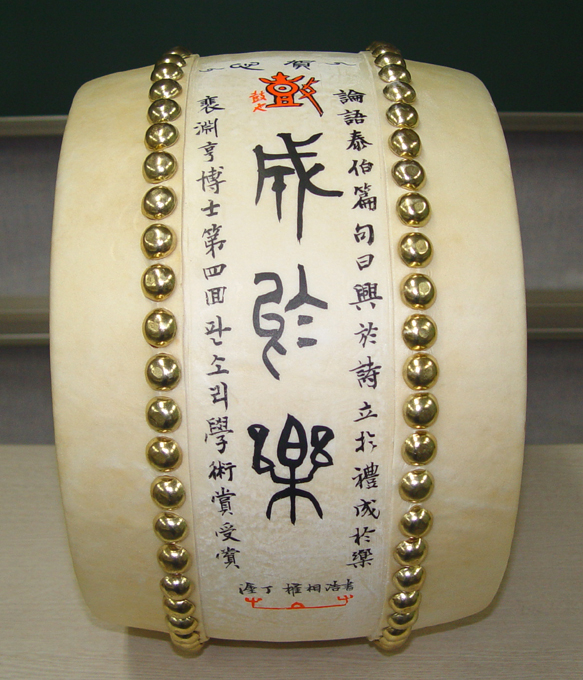 賀
論語泰伯篇句曰興於詩立於禮成於樂
成於樂
裵淵亨博士第四回판소리學術賞受賞
塗丁 權相浩書